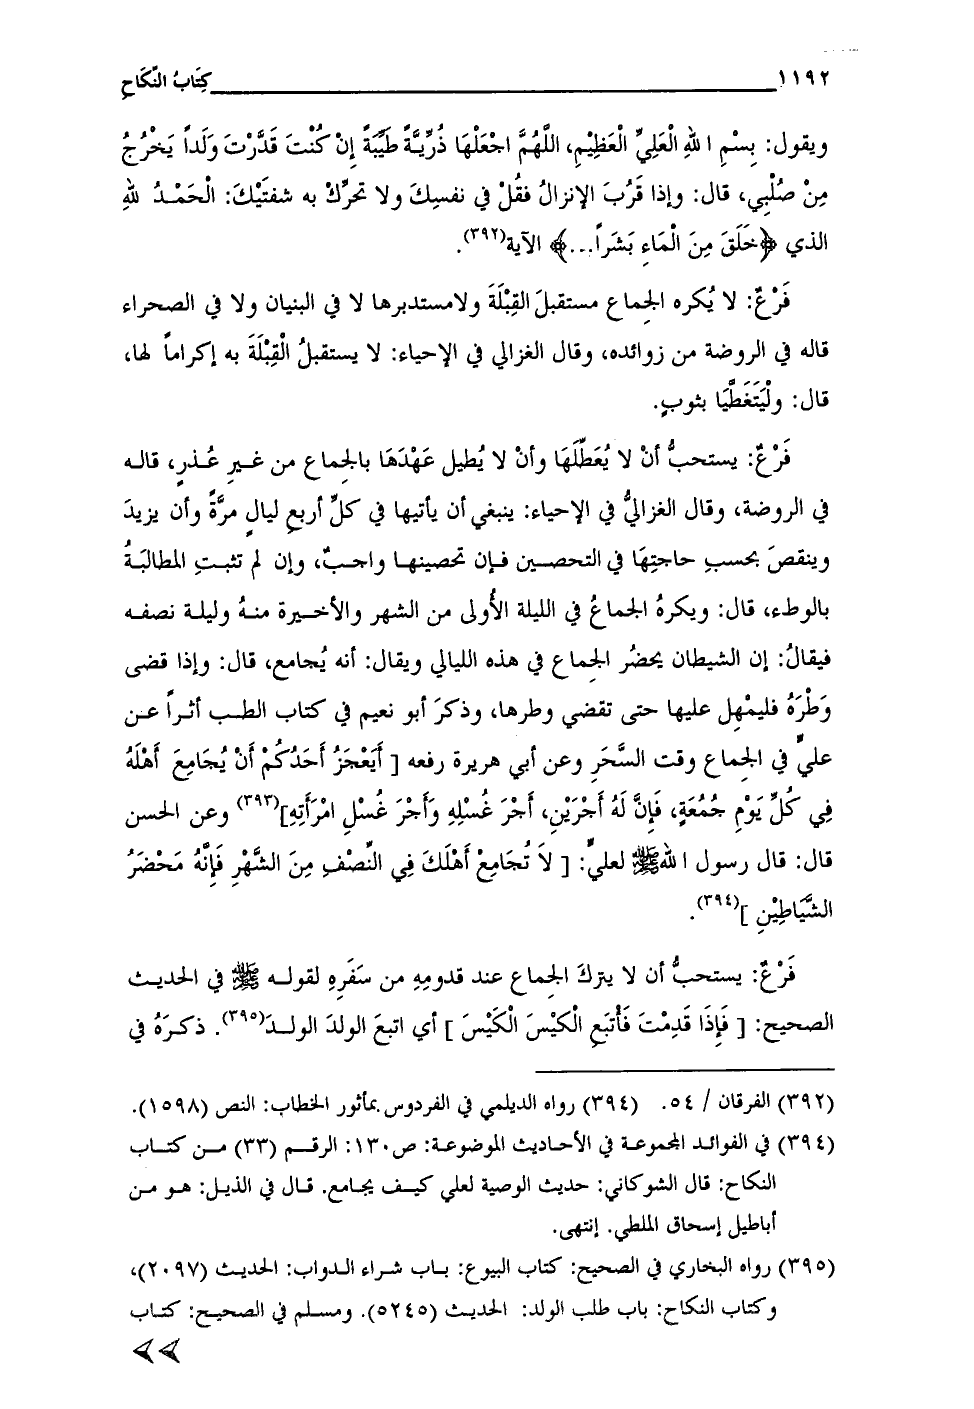 ١١٩٢ كِتَابُ النِّكَاحِ
ويقول: بِسْمِ اللهِ الْعَلِيِّ الْعَظِيْمِ، اللَّهُمَّ اجْعَلْهَا ذُرِّيَّةً طَيِّبَةً إِنْ كُنْتَ قَدَّرْتَ وَلَداً يَخْرُجُ
مِنْ صُلْبِي، قال: وإذا قَرُبَ الإنزالُ فقُلْ في نفسِكَ ولا تحرِّكْ به شفتَيْكَ: الْحَمْدُ للهِ
الذي ﴿خَلَقَ مِنَ الْمَاءِ بَشَراً...﴾ الآية(٣٩٢).
فَرْعٌ: لا يُكره الجماع مستقبلَ القِبْلَةَ ولامستدبرها لا في البنيان ولا في الصحراء
قاله في الروضة من زوائده، وقال الغزالي في الإحياء: لا يستقبلُ الْقِبْلَةَ به إكراماً لها،
قال: ولْيَتَغَطَّيَا بثوبٍ.
فَرْعٌ: يستحبُّ أنْ لا يُعَطِّلَهَا وأنْ لا يُطيل عَهْدَهَا بالجماع من غيرِ عُذرٍ، قاله
في الروضة، وقال الغزاليُّ في الإحياء: ينبغي أن يأتيها في كلِّ أربعِ ليالٍ مرَّةً وأن يزيدَ
وينقصَ بحسبِ حاجتِهَا في التحصين فإن تحصينها واجبٌ، وإن لم تثبتِ المطالبَةُ
بالوطء، قال: ويكرهُ الجماعُ في الليلة الأُولى من الشهر والأخيرة منهُ وليلة نصفه
فيقالُ: إن الشيطان يحضُر الجماع في هذه الليالي ويقال: أنه يُجامع، قال: وإذا قضى
وَطْرَهُ فليمْهِل عليها حتى تقضي وطرها، وذكرَ أبو نعيم في كتاب الطب أثراً عن
عليٍّ في الجماع وقت السَّحَرِ وعن أبي هريرة رفعه [ أَيَعْجَزُ أَحَدُكُمْ أَنْ يُجَامِعَ أَهْلَهُ
فِي كُلِّ يَوْمِ جُمُعَةٍ، فَإِنَّ لَهُ أَجْرَيْنِ، أَجْرَ غُسْلِهِ وَأَجْرَ غُسْلِ امْرَأَتِهِ](٣٩٣) وعن الحسن
قال: قال رسول اللهﷺ لعليٍّ: [ لاَ تُجَامِعْ أَهْلَكَ فِي النِّصْفِ مِنَ الشَّهْرِ فَإِنَّهُ مَحْضَرُ
الشَّيَاطِيْنِ ](٣٩٤).
فَرْعٌ: يستحبُّ أن لا يتركَ الجماع عند قدومِهِ من سَفَرِهِ لقوله ﷺ في الحديث
الصحيح: [ فَإِذَا قَدِمْتَ فَأَتْبَعِ الْكَيْسَ الْكَيْسَ ] أي اتبعَ الولدَ الولدَ(٣٩٥). ذكرَهُ في
(٣٩٢) الفرقان / ٥٤. (٣٩٤) رواه الديلمي في الفردوس بمأثور الخطاب: النص (١٥٩٨).
(٣٩٤) في الفوائد المجموعة في الأحاديث الموضوعة: ص١٣٠: الرقم (٣٣) من كتاب
النكاح: قال الشوكاني: حديث الوصية لعلي كيف يجامع. قال في الذيل: هو من
أباطيل إسحاق الملطي. إنتهى.
(٣٩٥) رواه البخاري في الصحيح: كتاب البيوع: باب شراء الدواب: الحديث (٢٠٩٧)،
وكتاب النكاح: باب طلب الولد: الحديث (٥٢٤٥). ومسلم في الصحيح: كتاب